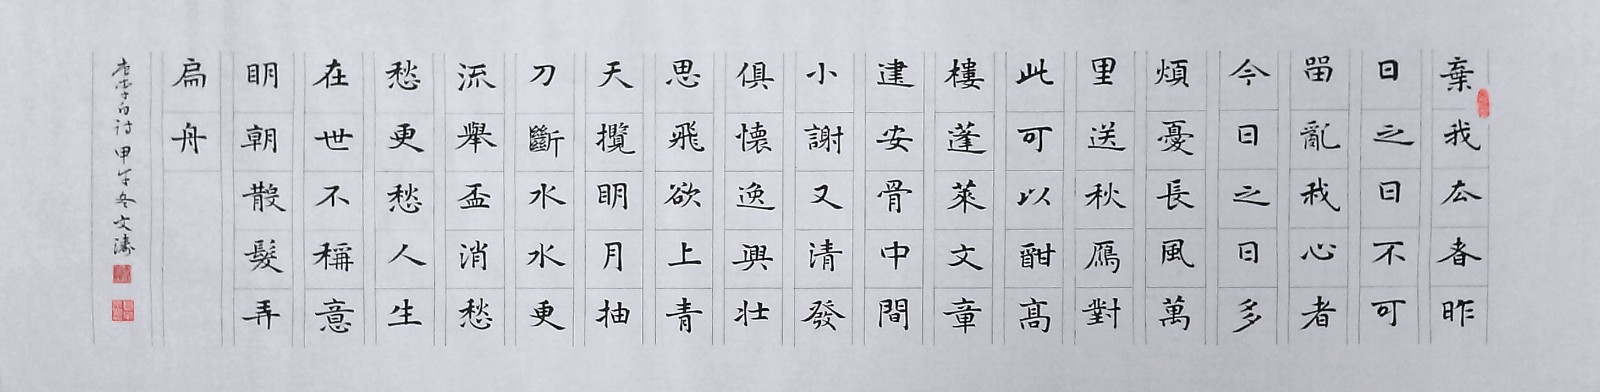 棄我厺者昨
日之日不可
留亂我心者
今日之日多
煩憂長風萬
里送秋鴈對
此可以酣髙
樓蓬萊文章
建安骨中間
小謝又清發
俱懷逸興壯
思飛欲上青
天攬眀月抽
刀斷水水更
流舉盃消愁
愁更愁人生
在世不稱意
眀朝散髮弄
扁舟
唐李白詩甲午冬文濤